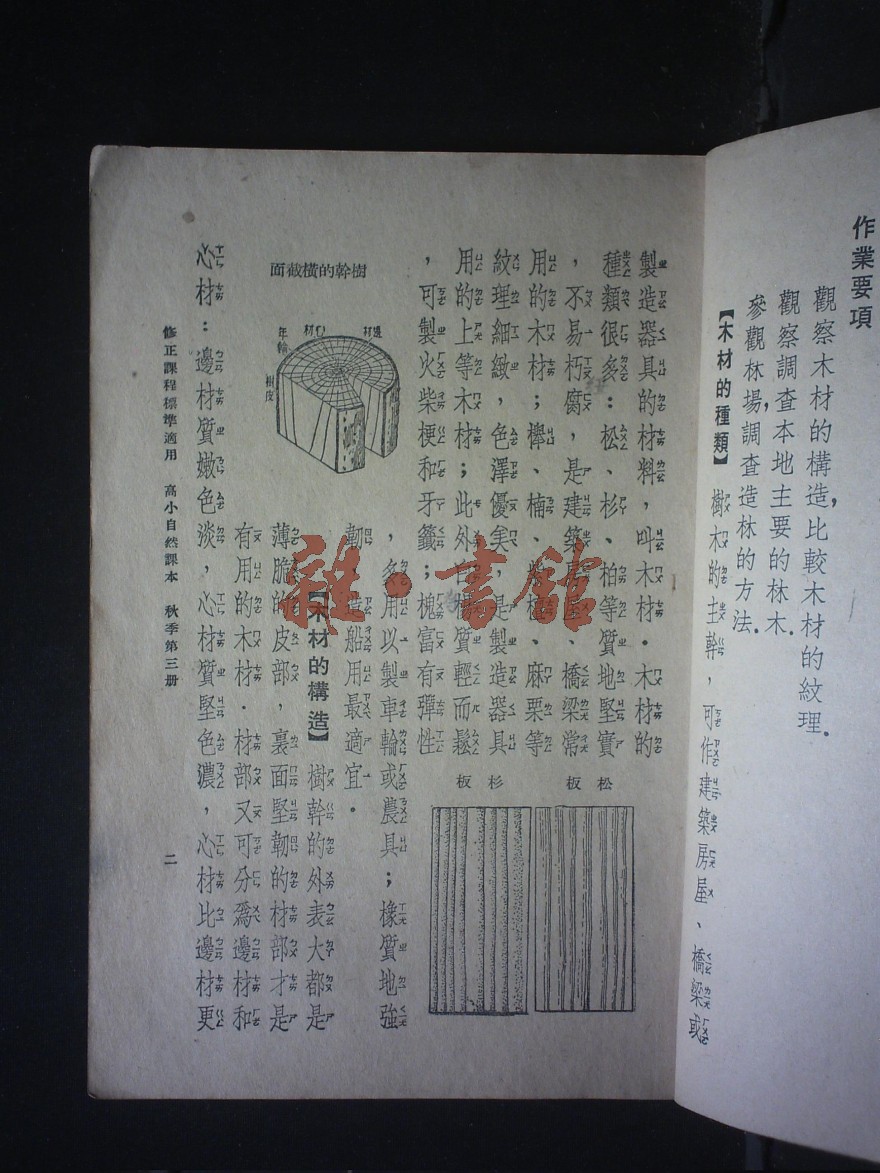 作業要項
觀察木材的構造,比較木材的紋理.
觀察調查本地主要的林木.
參觀林場,調查造林的方法.
【木材的種類】 樹木的主幹,可作建築房屋、橋梁或
製造器具的材料,叫木材.木材的
種類很多:松、杉、柏等質地堅實
,不易朽腐,是建築房屋、橋梁常
用的木材;櫸、楠、紫檀、麻栗等
紋理細緻,色澤優美,是製造器具
用的上等木材;此外白楊質輕而鬆
,可製火柴梗和牙籤;槐富有彈性
,多用以製車輪或農具;橡質地強
韌,造船用最適宜.
松板
杉板
【木材的構造】 樹幹的外表大都是
薄脆的皮部,裏面堅韌的材部才是
有用的木材.材部又可分爲邊材和
心材:邊材質嫩色淡,心材質堅色濃,心材比邊材更
樹幹的橫截面
邊材
心材
年輪
樹皮
修正課程標準適用 高小自然課本 秋季第三册
二
雜·書館